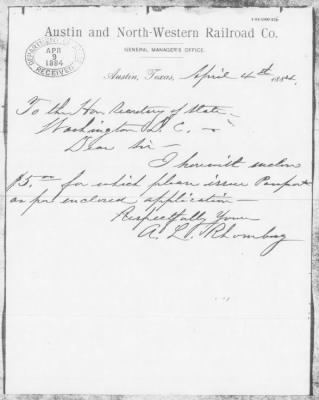 Austin and North-Western Railroad Co.
GENERAL MANAGER'S OFFICE.
DEPARTMENT OF STATE
APR
9
1884
RECEIVED
Austin, Texas, April 4th 1884.
To the Hon. Secretary of State
Washington D. C.
Dear Sir
I herewith enclose
$5.00 for which please issue Passport
as per enclosed application
Respectfully Yours
A. L. Rhomberg